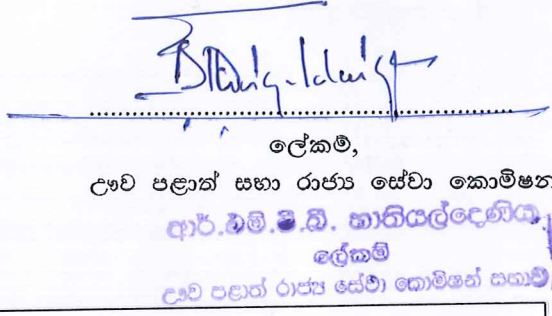 ලේකම්,
ඌව පළාත් සභා රාජ්‍ය සේවා කොමිෂන
ආර්.එම්. බී.
ලේකම්
ඌව පළාත් රාජ්‍ය සේවා කොමිෂන් සභාව